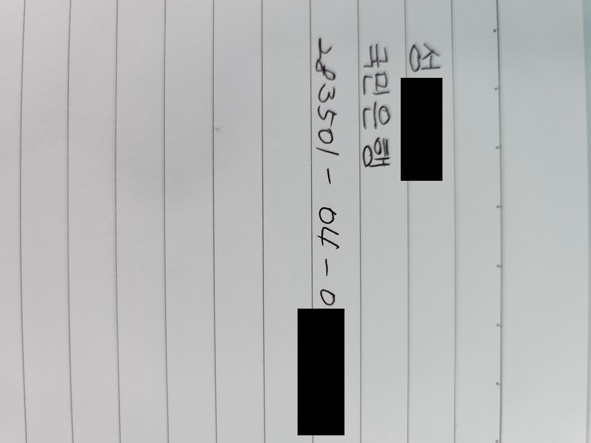 성
국민은행
283501-04-0